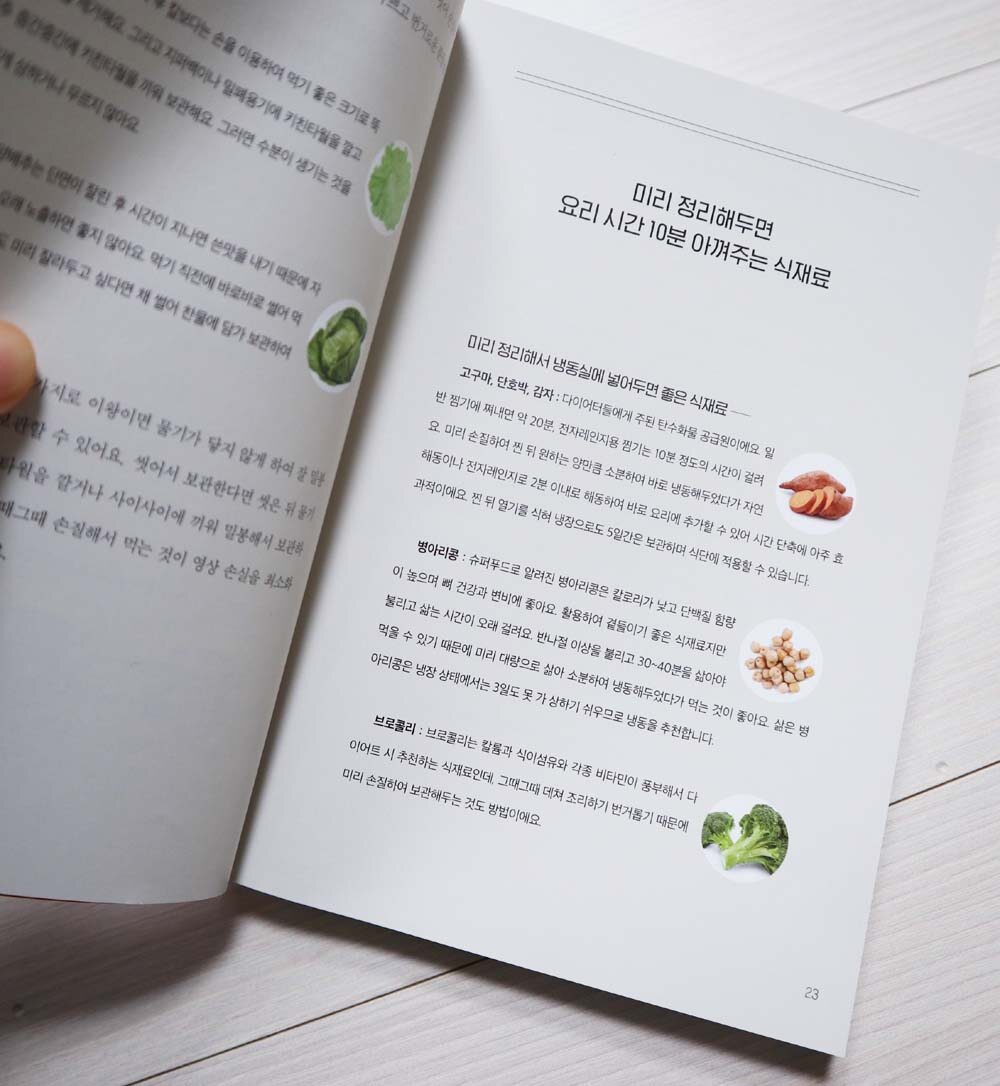 후 칼보다는 손을 이용하여 먹기 좋은 크기로 뚝
제거해요. 그리고 지퍼백이나 밀폐용기에 키친타월을 깔고
중간중간에 키친타월을 끼워 보관해요. 그러면 수분이 생기는 것을
상하거나 무르지 않아요.
양배추는 단면이 잘린 후 시간이 지나면 쓴맛을 내기 때문에 자
오래 노출하면 좋지 않아요. 먹기 직전에 바로바로 썰어 먹
도 미리 잘라두고 싶다면 채 썰어 찬물에 담가 보관하여
가지로 이왕이면 물기가 닿지 않게 하여 잘 밀봉
보관할 수 있어요. 씻어서 보관한다면 씻은 뒤 물기
타월을 깔거나 사이사이에 끼워 밀봉해서 보관하
때그때 손질해서 먹는 것이 영양 손실을 최소화
미리 정리해두면
요리 시간 10분 아껴주는 식재료
미리 정리해서 냉동실에 넣어두면 좋은 식재료
고구마, 단호박, 감자 : 다이어터들에게 주된 탄수화물 공급원이에요. 일
반 찜기에 쪄내면 약 20분, 전자레인지용 찜기는 10분 정도의 시간이 걸려
요. 미리 손질하여 찐 뒤 원하는 양만큼 소분하여 바로 냉동해두었다가 자연
해동이나 전자레인지로 2분 이내로 해동하여 바로 요리에 추가할 수 있어 시간 단축에 아주 효
과적이에요. 찐 뒤 열기를 식혀 냉장으로도 5일간은 보관하며 식단에 적용할 수 있습니다.
병아리콩 : 슈퍼푸드로 알려진 병아리콩은 칼로리가 낮고 단백질 함량
이 높으며 뼈 건강과 변비에 좋아요. 활용하여 곁들이기 좋은 식재료지만
불리고 삶는 시간이 오래 걸려요. 반나절 이상을 불리고 30~40분을 삶아야
먹을 수 있기 때문에 미리 대량으로 삶아 소분하여 냉동해두었다가 먹는 것이 좋아요. 삶은 병
아리콩은 냉장 상태에서는 3일도 못 가 상하기 쉬우므로 냉동을 추천합니다.
브로콜리 : 브로콜리는 칼륨과 식이섬유와 각종 비타민이 풍부해서 다
이어트 시 추천하는 식재료인데, 그때그때 데쳐 조리하기 번거롭기 때문에
미리 손질하여 보관해두는 것도 방법이에요.
23